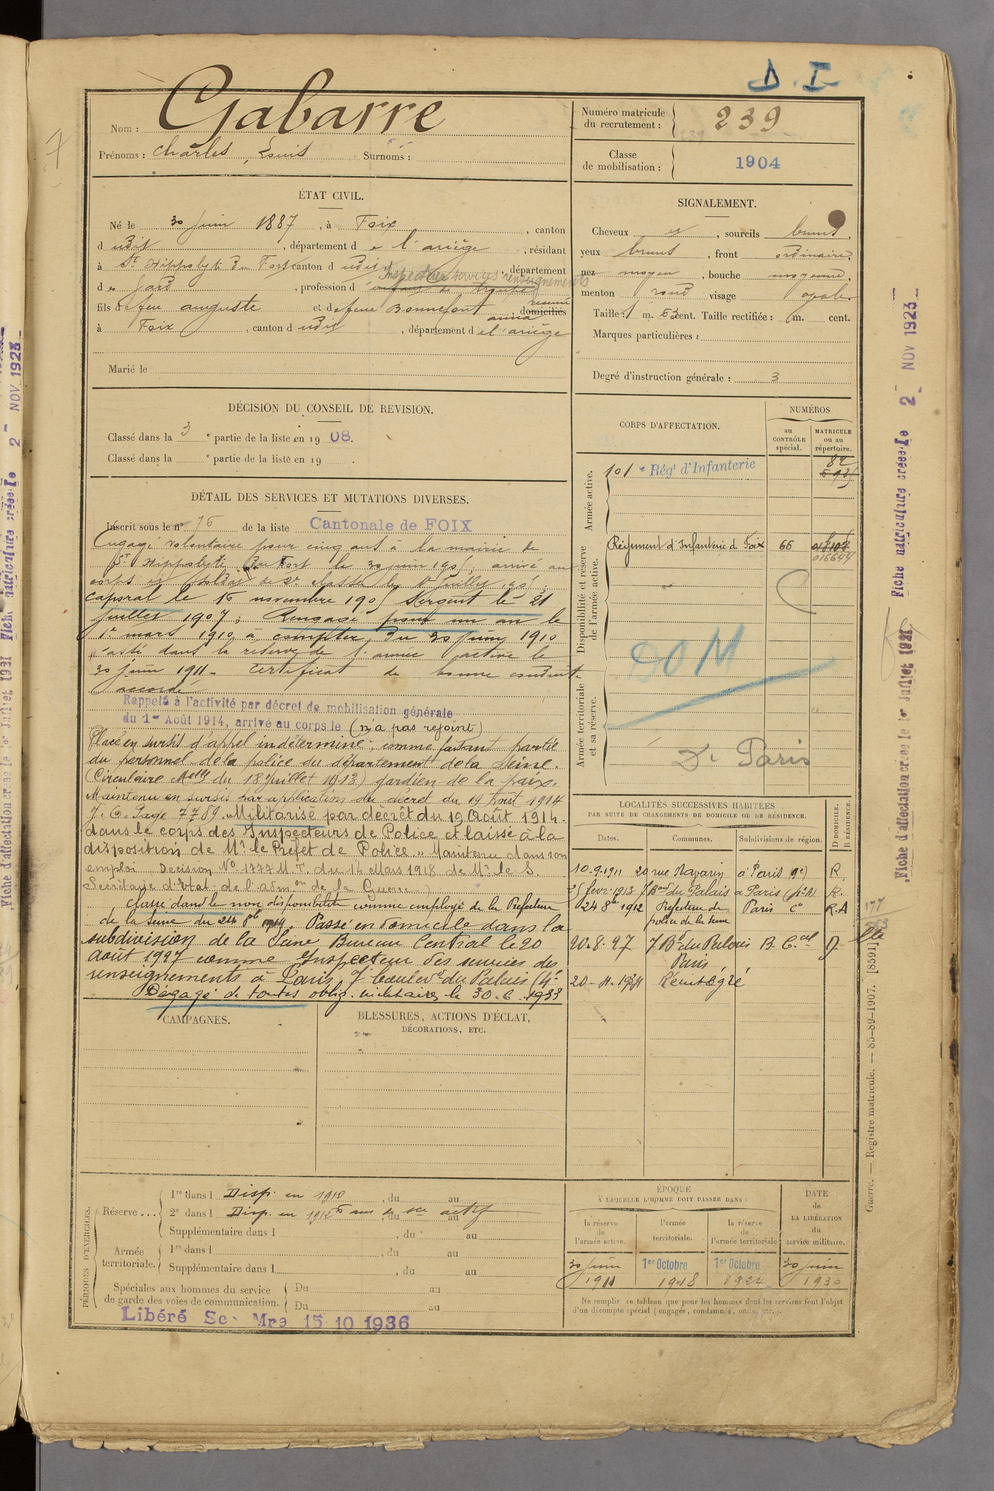 D. I.
Nom : Gabarre
Prénoms : Charles, Louis Surnoms :
Numéro matricule du recrutement : 239
Classe de mobilisation : 1904
ÉTAT CIVIL.
Né le 30 juin 1887, à Foix, canton
dudit, département de l'ariège, résidant
à St Hippolyte du Fort canton dudit, département
Inspecteur services renseignements
du gard, profession d
fils de feu auguste et de feue Bonnefont anna domiciliés
à Foix, canton dudit, département de l'ariège
Marié le
SIGNALEMENT.
Cheveux et, sourcils bruns,
yeux bruns, front ordinaire,
nez moyen, bouche moyenne,
menton rond visage ovale
Taille : 1 m. 63 cent. Taille rectifiée : m. cent.
Marques particulières :
Degré d'instruction générale : 3
DÉCISION DU CONSEIL DE REVISION.
Classé dans la 3e partie de la liste en 1908.
Classé dans la e partie de la liste en 19 .
DÉTAIL DES SERVICES ET MUTATIONS DIVERSES.
Inscrit sous le n° 76 de la liste Cantonale de FOIX
Engagé volontaire pour cinq ans à la mairie de
St Hippolyte du Fort le 30 juin 190 , arrivé au
corps et soldat de 2e classe le 1er juillet 190 ,
caporal le 16 novembre 190 , Sergent le 21
juillet 1907 ; Rengagé pour un an le
1er mars 1910 à compter du 30 juin 1910
Passé dans la réserve de l'armée active le
30 juin 1911 - certificat de bonne conduite
accordé
Rappelé à l'activité par décret de mobilisation générale
du 1er Août 1914, arrivé au corps le (n'a pas rejoint)
Placé en sursis d'appel indéterminé, comme faisant partie
du personnel de la police du département de la Seine.
(Circulaire Melle du 18 juillet 1913) gardien de la paix.
Maintenu en sursis par application du décret du 19 Août 1914
J. O. Page 7789. Militarisé par décret du 19 Août 1914.
dans le corps des Inspecteurs de Police et laissé à la
disposition de Mr le Préfet de Police. Maintenu dans son
emploi Décision No 1777 M.T. du 14 Mars 1918 de Mr le S.
Secrétaire d'Etat de l'admon de la Guerre
Classé dans la non disponibilité comme employé de la Préfecture
de la Seine du 24 8bre 1914. Passé en domicile dans la
subdivision de la Seine, Bureau Central le 20
août 1927 comme Inspecteur des services des
renseignements à Paris, 7 boulevd du Palais (4e
Dégagé de toutes oblig. militaires le 30.6.1933
CORPS D'AFFECTATION.
NUMÉROS
au CONTRÔLE spécial.
MATRICULE ou au répertoire.
Armée active.
101e Régt d'Infanterie 82
Disponibilité et réserve de l'armée active.
Régiment d'Infanterie de Foix 66 016644
DOM
Armée territoriale et sa réserve.
D. Paris
LOCALITÉS SUCCESSIVES HABITÉES
PAR SUITE DE CHANGEMENTS DE DOMICILE OU DE RÉSIDENCE.
Dates. Communes. Subdivisions de région. D DOMICILE. R RÉSIDENCE.
10.9.1911 20 rue Navarin à Paris 9e) R.
15 févr. 1913 7 Bard du Palais à Paris R.
24 8bre 1912 Préfecture de police de la Seine Paris Ce R.A
20.8.27 7 Bd du Palais Paris B. Cal D
20-11-1931 Réintégré
CAMPAGNES.
BLESSURES, ACTIONS D'ÉCLAT,
DÉCORATIONS, ETC.
PÉRIODES D'EXERCICES.
Réserve ...
1re dans l Disp. en 1910, du au
2e dans l Disp. en 1912 ans de sce actif, du au
Supplémentaire dans l , du au
Armée territoriale.
1re dans l , du au
Supplémentaire dans l , du au
Spéciales aux hommes du service
de garde des voies de communication.
Du au
Du au
Libéré Sce Mre 15 10 1936
ÉPOQUE
À LAQUELLE L'HOMME DOIT PASSER DANS :
la réserve de l'armée active.
l'armée territoriale.
la réserve de l'armée territoriale
DATE de LA LIBÉRATION du service militaire.
30 juin 1911
1er Octobre 1918
1er Octobre 1924
30 juin 1930
Ne remplir ce tableau que pour les hommes dont les services font l'objet
d'un décompte spécial (engagés, condamnés, omis, etc.).
Guerre. — Registre matricule. — 85-89-1907. [8591]
Fiche d'affectation créée le 1er Juillet 1921
Fiche matriculaire créée le 2 NOV 1923